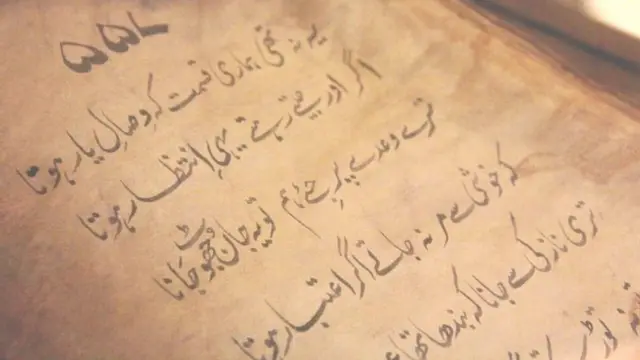 یہ نہ تھی ہماری قسمت کہ وصالِ یار ہوتا
اگر اور جیتے رہتے یہی انتظار ہوتا
ترے وعدے پر جئے ہم تو یہ جان جھوٹ جانا
کہ خوشی سے مر نہ جاتے اگر اعتبار ہوتا
تری نازکی سے جانا کہ بندھا تھا